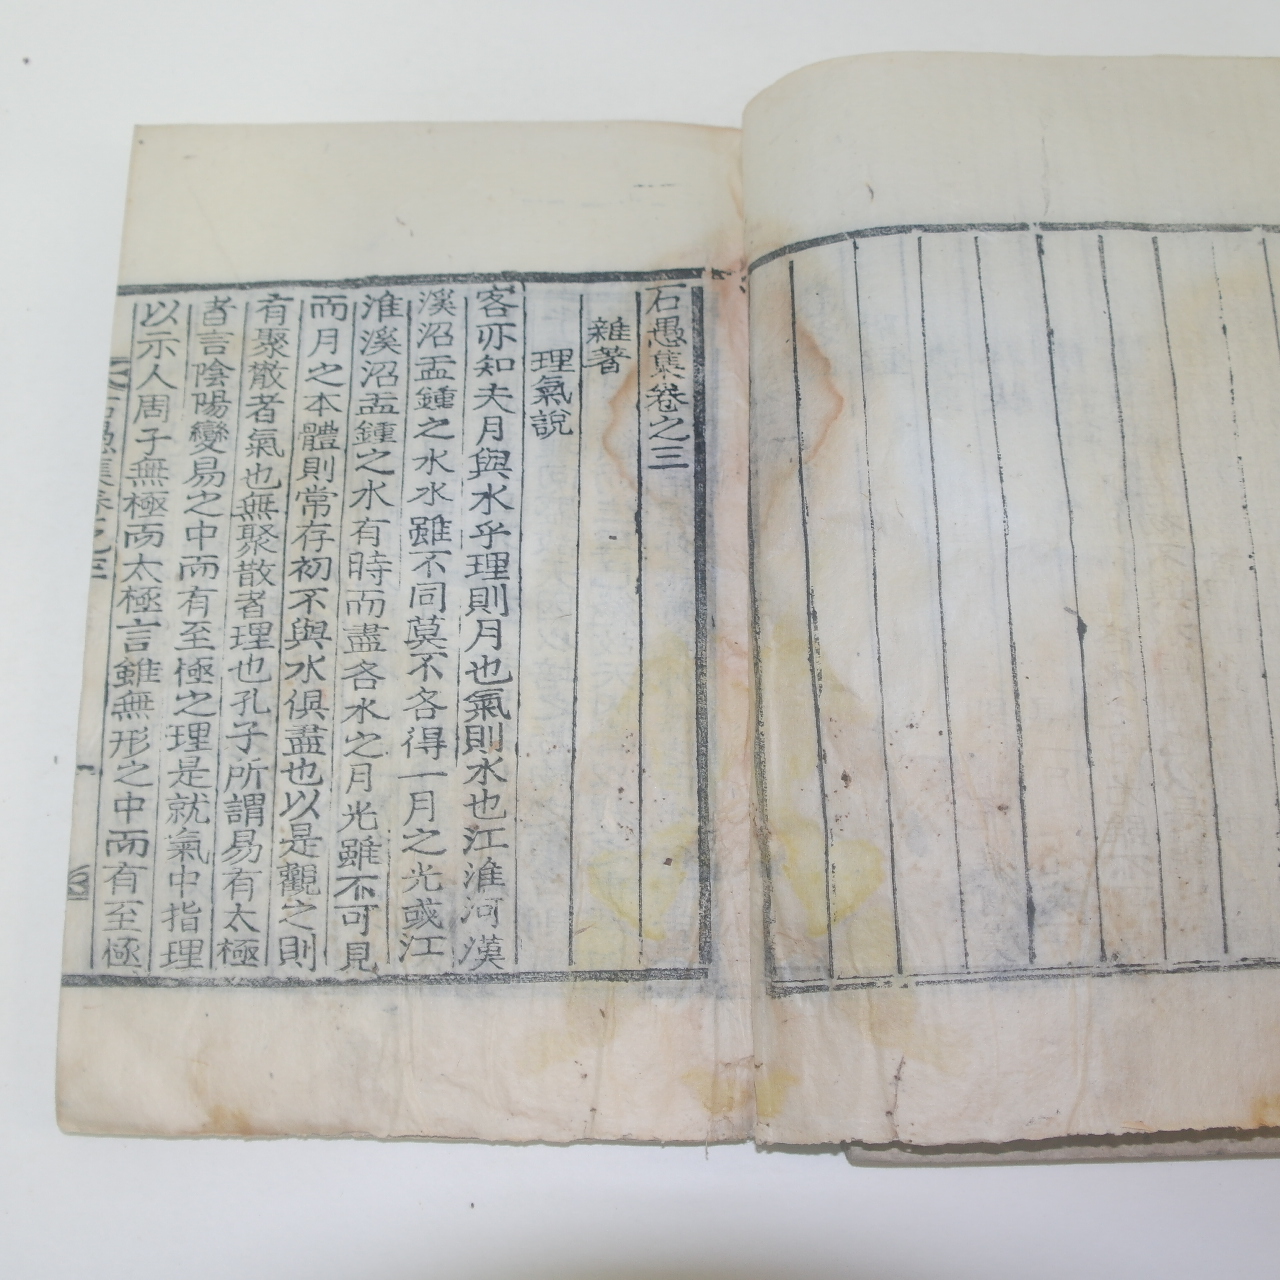 石愚集卷之三
雜著
理氣說
客亦知夫月與水乎理則月也氣則水也江淮河漢
溪沼盂鍾之水水雖不同莫不各得一月之光或江
淮溪沼盂鍾之水有時而盡各水之月光雖不可見
而月之本體則常存初不與水俱盡也以是觀之則
有聚散者氣也無聚散者理也孔子所謂易有太極
者言陰陽變易之中而有至極之理是就氣中指理
以示人周子無極而太極言雖無形之中而有至極
石愚集卷之三